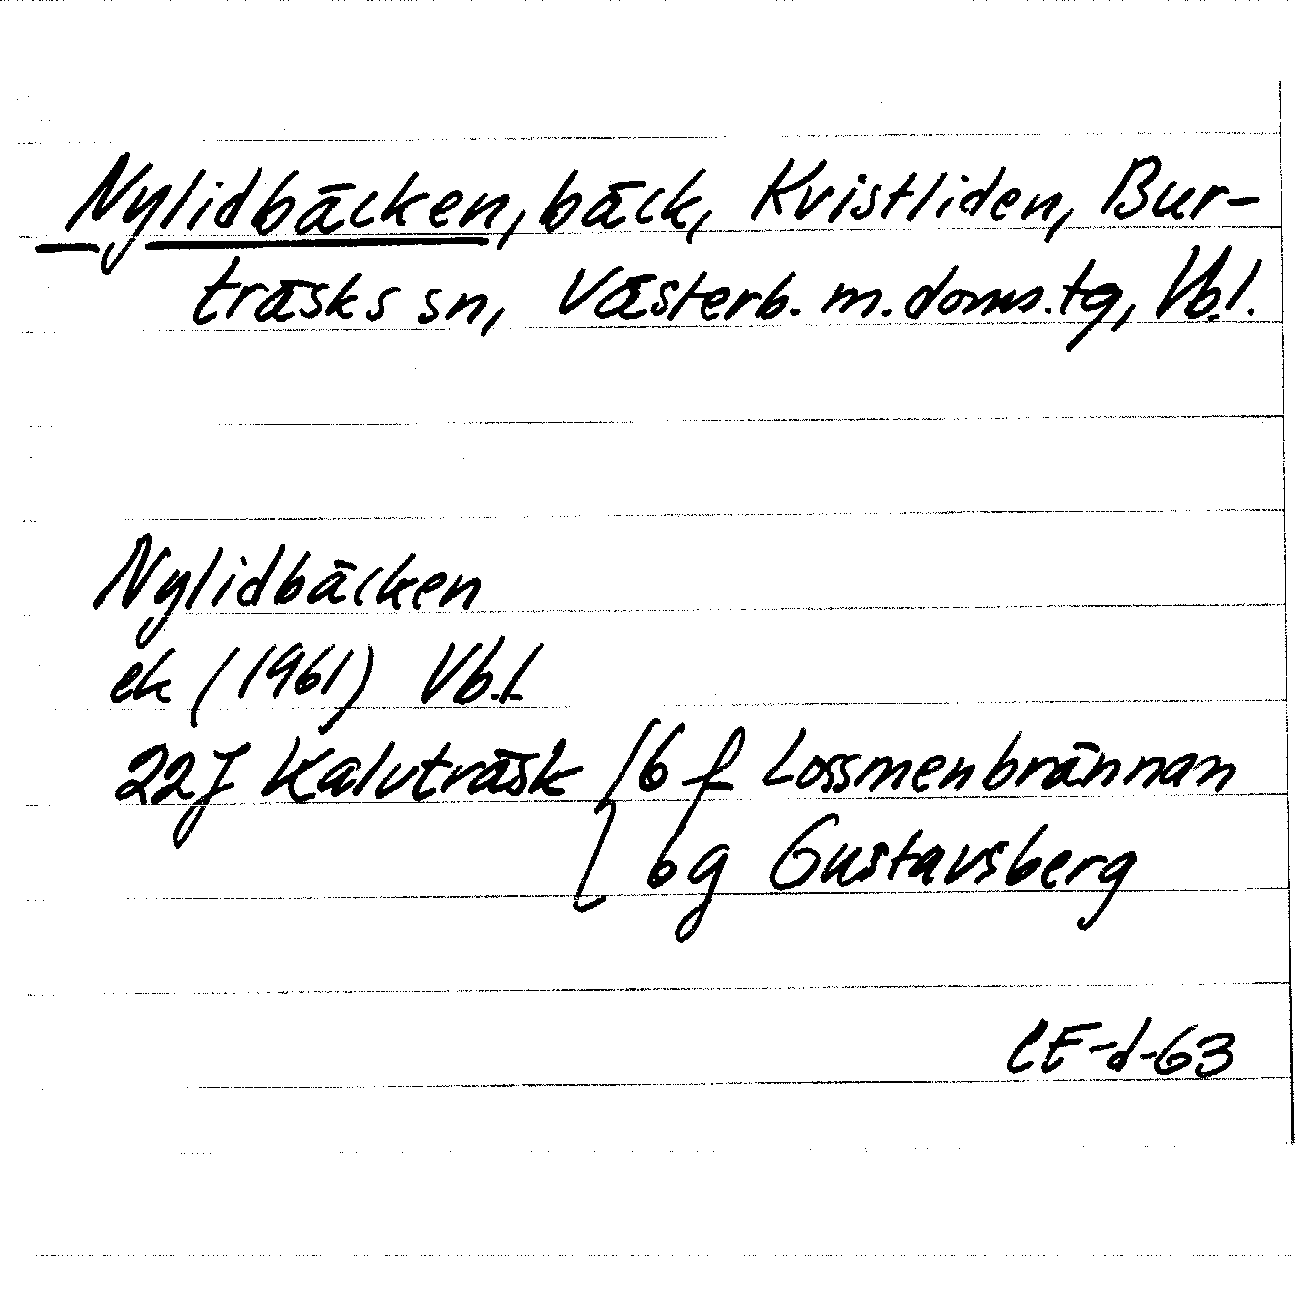 Nylidbäcken, bäck, Kvistliden, Bur-
träsks sn, Västerb. m. doms.tg, Vb.l.
Nylidbäcken
ek (1961) Vb.l.
22J Kalvträsk 6 f Lossmenbrännan
6g Gustavsberg
CE-d-63